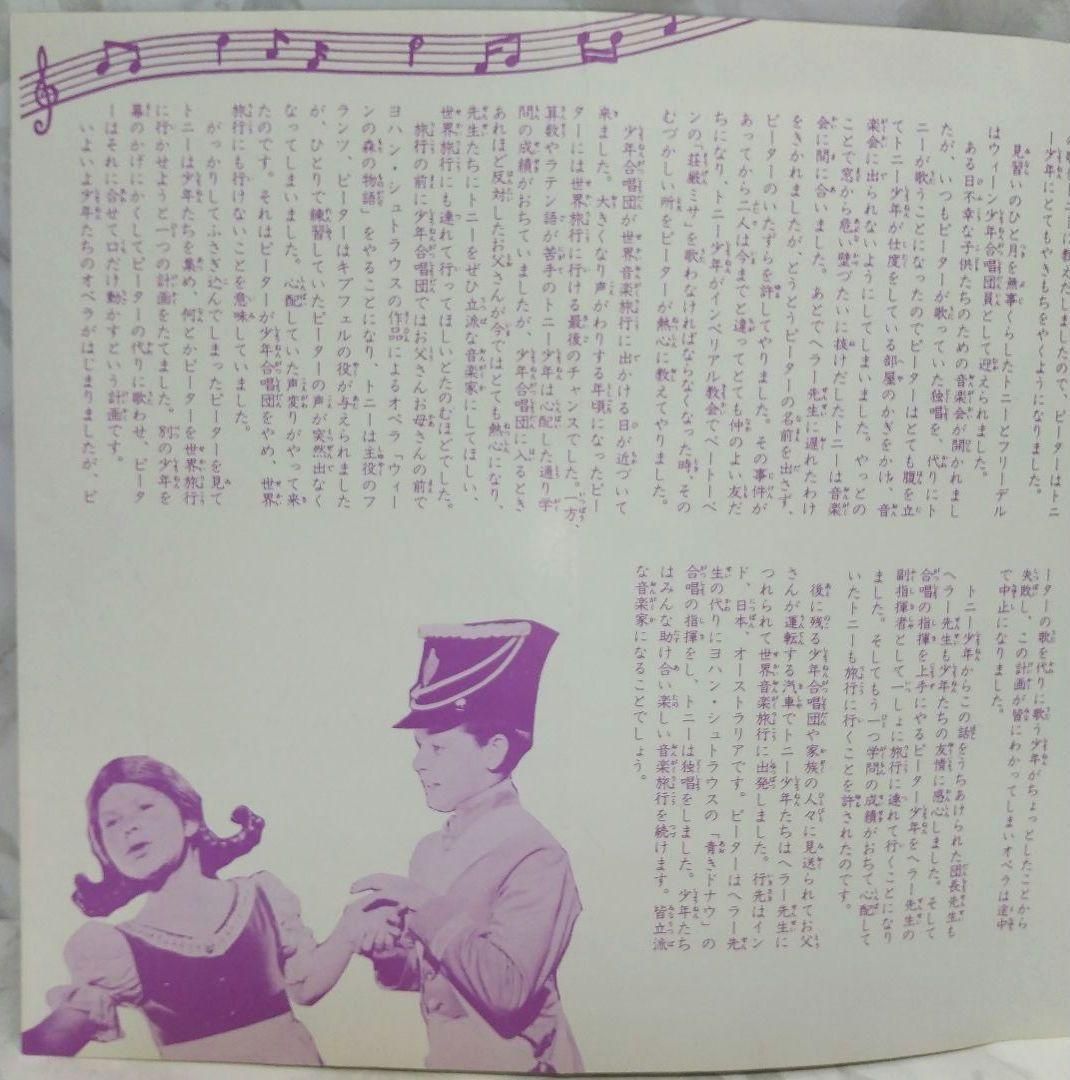 ー少年にとてもやきもちをやくようになりました。
見習いのひと月を無事くらしたトニーとフリーデル
はウィーン少年合唱団員として迎えられました。
ある日不幸な子供たちのための音楽会が開かれまし
たが、いつもピーターが歌っていた独唱を、代りにト
ニーが歌うことになったのでピーターはとても腹を立
てトニー少年が仕度をしている部屋のかぎをかけ、音
楽会に出られないようにしてしまいました。やっとの
ことで窓から危い壁づたいに抜けだしたトニーは音楽
会に間に合いました。あとでヘラー先生に遅れたわけ
をきかれましたが、とうとうピーターの名前を出さず、
ピーターのいたずらを許してやりました。その事件が
あってから二人は今までと違ってとても仲のよい友だ
ちになり、トニー少年がインペリアル教会でベートーベ
ンの「荘厳ミサ」を歌わなければならなくなった時、その
むづかしい所をピーターが熱心に教えてやりました。
少年合唱団が世界音楽旅行に出かける日が近づいて
来ました。大きくなり声がわりする年頃になったピー
ターには世界旅行に行ける最後のチャンスでした。一方、
算数やラテン語が苦手のトニー少年は心配した通り学
問の成績がおちていましたが、少年合唱団に入るとき
あれほど反対したお父さんが今ではとても熱心になり、
先生たちにトニーをぜひ立派な音楽家にしてほしい、
世界旅行にも連れて行ってほしいとたのむほどでした。
旅行の前に少年合唱団ではお父さんお母さんの前で
ヨハン・シュトラウスの作品によるオペラ「ウィー
ンの森の物語」をやることになり、トニーは主役のフ
ランツ、ピーターはキプフェルの役が与えられました
が、ひとりで練習していたピーターの声が突然出なく
なってしまいました。心配していた声変りがやって来
たのです。それはピーターが少年合唱団をやめ、世界
旅行にも行けないことを意味していました。
がっかりしてふさぎ込んでしまったピーターを見て
トニーは少年たちを集め、何とかピーターを世界旅行
に行かせようと一つの計画をたてました。別の少年を
幕のかげにかくしてピーターの代りに歌わせ、ピータ
ーはそれに合せて口だけ動かすという計画です。
いよいよ少年たちのオペラがはじまりましたが、ピ
ーターの歌を代りに歌う少年がちょっとしたことから
失敗し、この計画が皆にわかってしまいオペラは途中
で中止になりました。
トニー少年からこの話をうちあけられた団長先生も
ヘラー先生も少年たちの友情に感心しました。そして
合唱の指揮を上手にやるピーター少年をヘラー先生の
副指揮者として一しょに旅行に連れて行くことになり
ました。そしてもう一つ学問の成績がおちて心配して
いたトニーも旅行に行くことを許されたのです。
後に残る少年合唱団や家族の人々に見送られてお父
さんが運転する汽車でトニー少年たちはヘラー先生に
つれられて世界音楽旅行に出発しました。行先はイン
ド、日本、オーストラリアです。ピーターはヘラー先
生の代りにヨハン・シュトラウスの「青きドナウ」の
合唱の指揮をし、トニーは独唱をしました。少年たち
はみんな助け合い楽しい音楽旅行を続けます。皆立派
な音楽家になることでしょう。